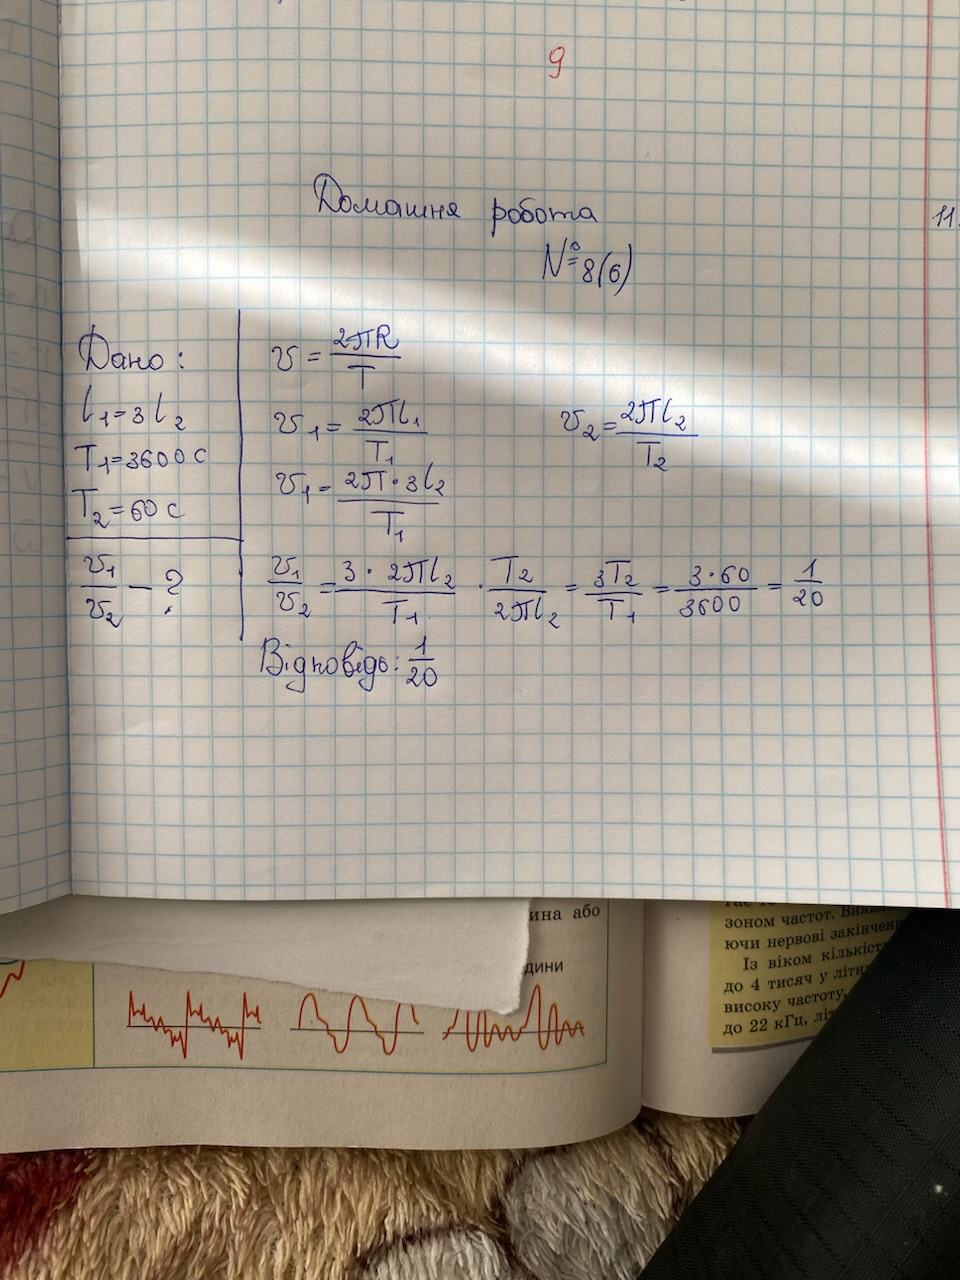 9
Домашня робота
11.
№ 8(6)
Дано:
l₁=3l₂
T₁=3600 с
T₂=60 с
v₁/v₂ – ?
v = 2πR/T
v₁ = 2πl₁/T₁
v₂ = 2πl₂/T₂
v₁ = 2π·3l₂/T₁
v₁/v₂ = 3·2πl₂/T₁ · T₂/2πl₂ = 3T₂/T₁ = 3·60/3600 = 1/20
Відповідь: 1/20
ина або
дини
зоном частот.
ючи нервові
Із віком
до 4 тисяч у
високу частоту,
до 22 кГц,